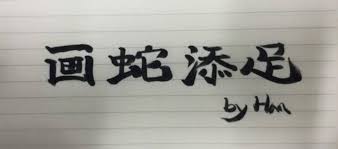 画蛇添足
by Han